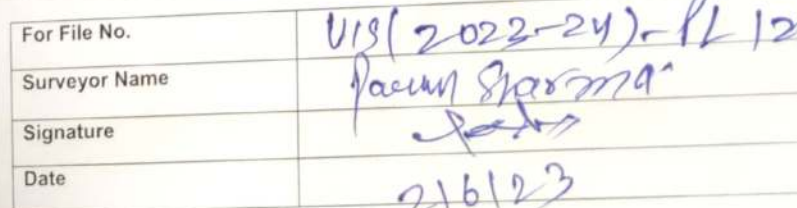 For File No. VIS(2023-24)-PL 12
Surveyor Name Sharma
Signature
Date 2/6/23